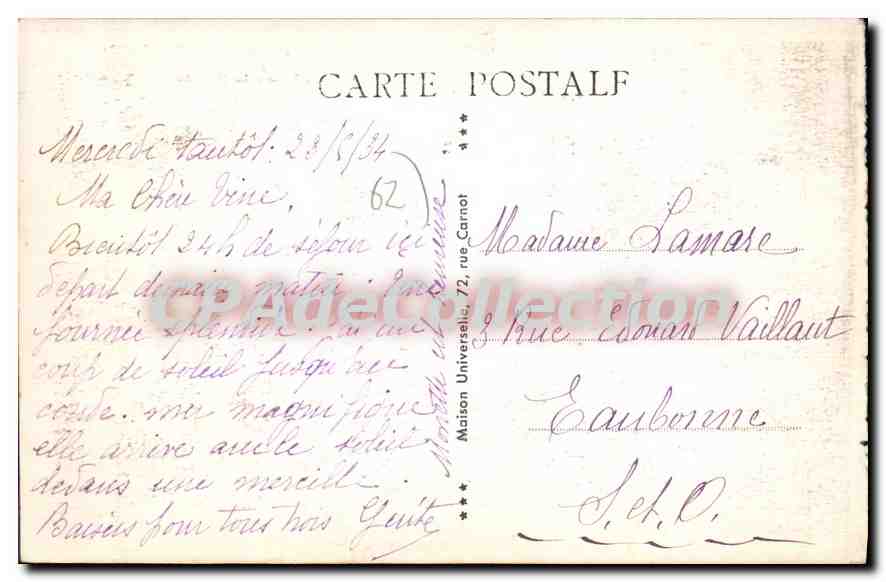 CARTE POSTALE
Mercredi tantôt. 23/5/34
62
Ma chère Vine,
Bientôt 24h de séjour ici
départ demain matin. Une
journée splendide. J'ai un
coup de soleil jusqu'au
coude. mer magnifique
elle arrive avec le soleil
dedans une merveille.
Baisers pour tous trois
Monette est heureuse
Maison Universelle, 72, rue Carnot
Madame Lamare
3 Rue Edouard Vaillant
Eaubonne
S. et O.
CPAdeCollection